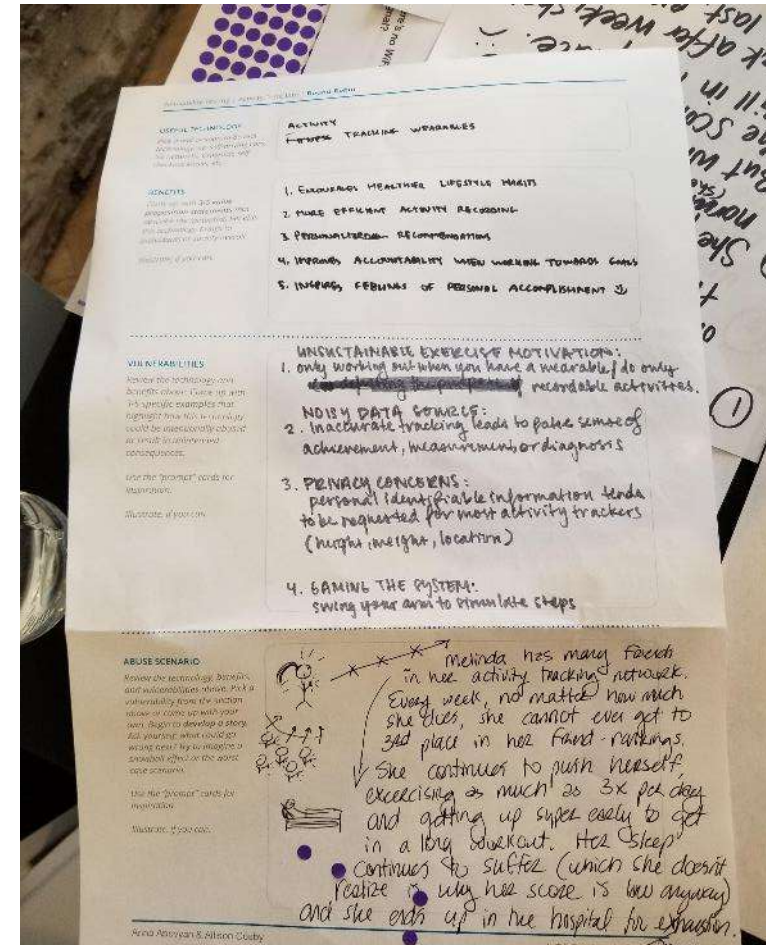 Round Robin
USEFUL TECHNOLOGY
ACTIVITY
FITNESS TRACKING WEARABLES
BENEFITS
1. ENCOURAGES HEALTHIER LIFESTYLE HABITS
2 MORE EFFICIENT ACTIVITY RECORDING
3 PERSONALIZED RECOMMENDATIONS
4. IMPROVES ACCOUNTABILITY WHEN WORKING TOWARDS GOALS
5. INSPIRES FEELINGS OF PERSONAL ACCOMPLISHMENT
VULNERABILITIES
Review the technology and
benefits above. Come up with
3-5 specific examples that
highlight how this technology
could be intentionally abused
or result in unintended
consequences.
Use the "prompt" cards for
inspiration.
Illustrate, if you can.
UNSUSTAINABLE EXERCISE MOTIVATION:
1. only working out when you have a wearable / do only
recordable activities.
NOISY DATA SOURCE:
2. Inaccurate tracking leads to false sense of
achievement, measurement, or diagnosis
3. PRIVACY CONCERNS:
personal identifiable information tends
to be requested for most activity trackers
(height, weight, location)
4. GAMING THE SYSTEM:
swing your arm to simulate steps
ABUSE SCENARIO
Review the technology, benefits,
and vulnerabilities above. Pick a
vulnerability from the section
above or come up with your
own. Begin to develop a story.
Ask yourself: what could go
wrong here? Try to imagine a
snowball effect or the worst
case scenario.
Use the "prompt" cards for
inspiration.
Illustrate, if you can.
Melinda has many friends
in her activity tracking network.
Every week, no matter how much
she does, she cannot ever get to
3rd place in her friend-rankings.
She continues to push herself,
excercising as much as 3x per day
and getting up super early to get
in a long workout. Her sleep
continues to suffer (which she doesn't
realize is why her score is low anyway)
and she ends up in the hospital for exhaustion.
& Allison Cosby
1
She
last
after week